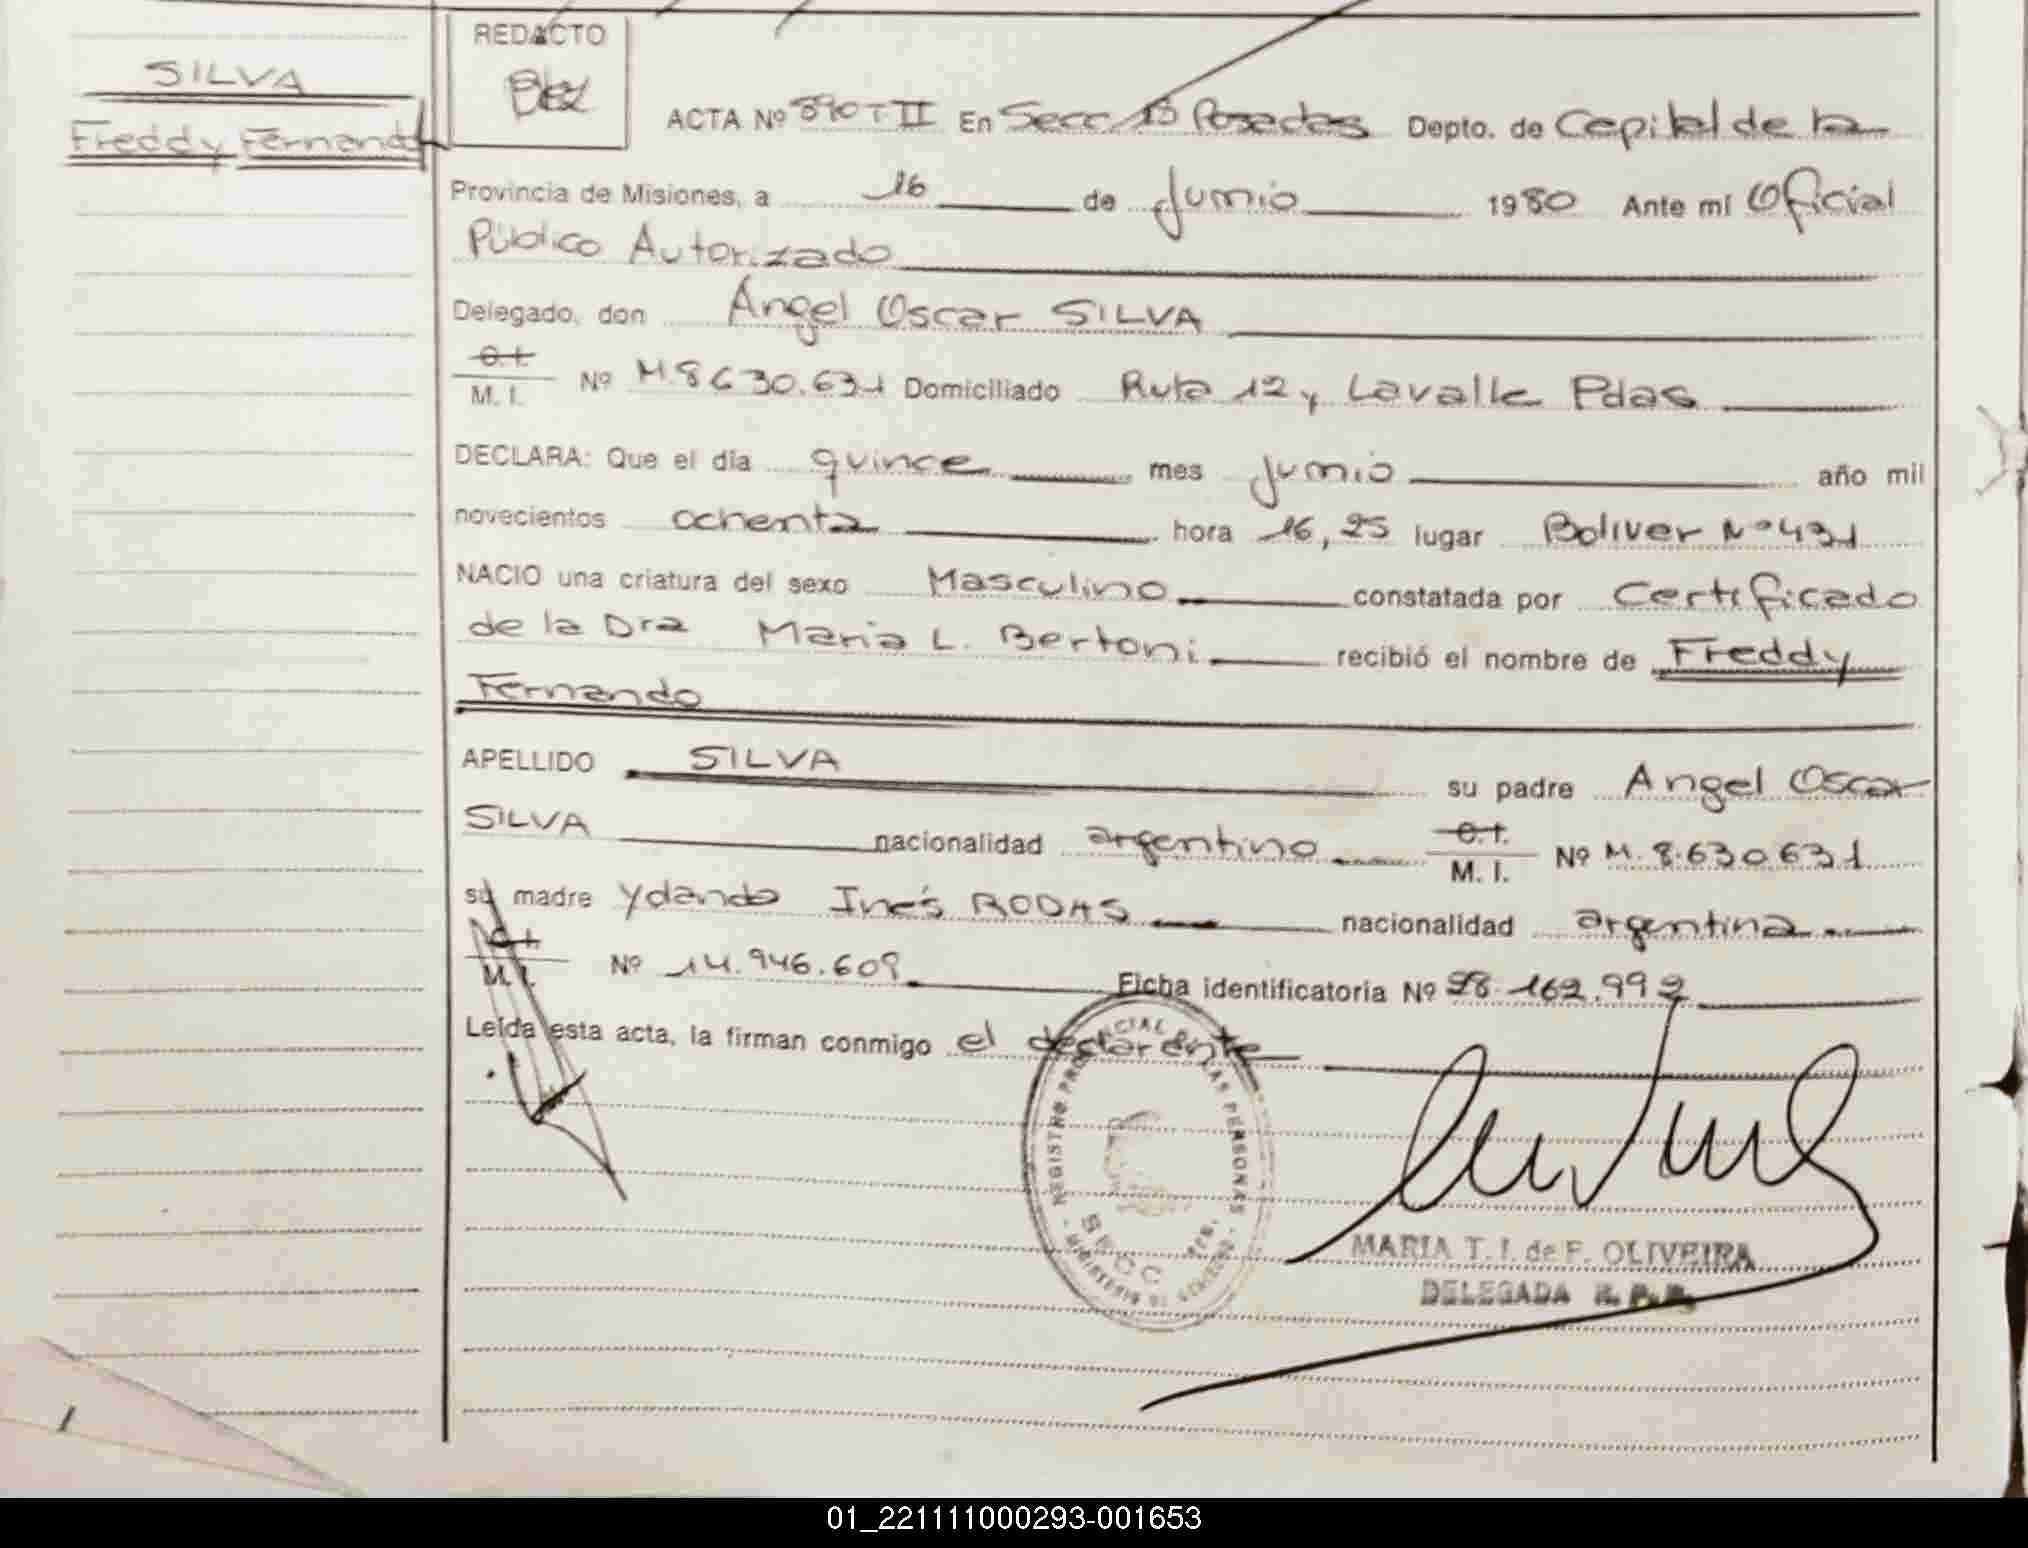 REDACTO
SILVA
Freddy Fernando
ACTA Nº 890 T II En Secc 1ª Posadas Depto. de Capital de la
Provincia de Misiones, a 16 de Junio 1980 Ante mí Oficial
Público Autorizado
Delegado, don Angel Oscar SILVA
C.I.
M. I. Nº M.8630.631 Domiciliado Ruta 12 y Lavalle Pdas
DECLARA: Que el día quince mes junio año mil
novecientos ochenta hora 16,25 lugar Bolivar Nº 431
NACIO una criatura del sexo Masculino constatada por Certificado
de la Dra Maria L. Bertoni recibió el nombre de Freddy
Fernando
APELLIDO SILVA su padre Angel Oscar
SILVA nacionalidad argentino C.I. M. I. Nº M. 8.630.631
su madre Ydanda Inés RODAS nacionalidad argentina
C.I.
M. I. Nº 14.946.609 Ficha identificatoria Nº 28.162.992
Leída esta acta, la firman conmigo el declarante
REGISTRO PROVINCIAL DE LAS PERSONAS
SECC
MARIA T. I. de F. OLIVEIRA
DELEGADA R. P. P.
01_221111000293-001653